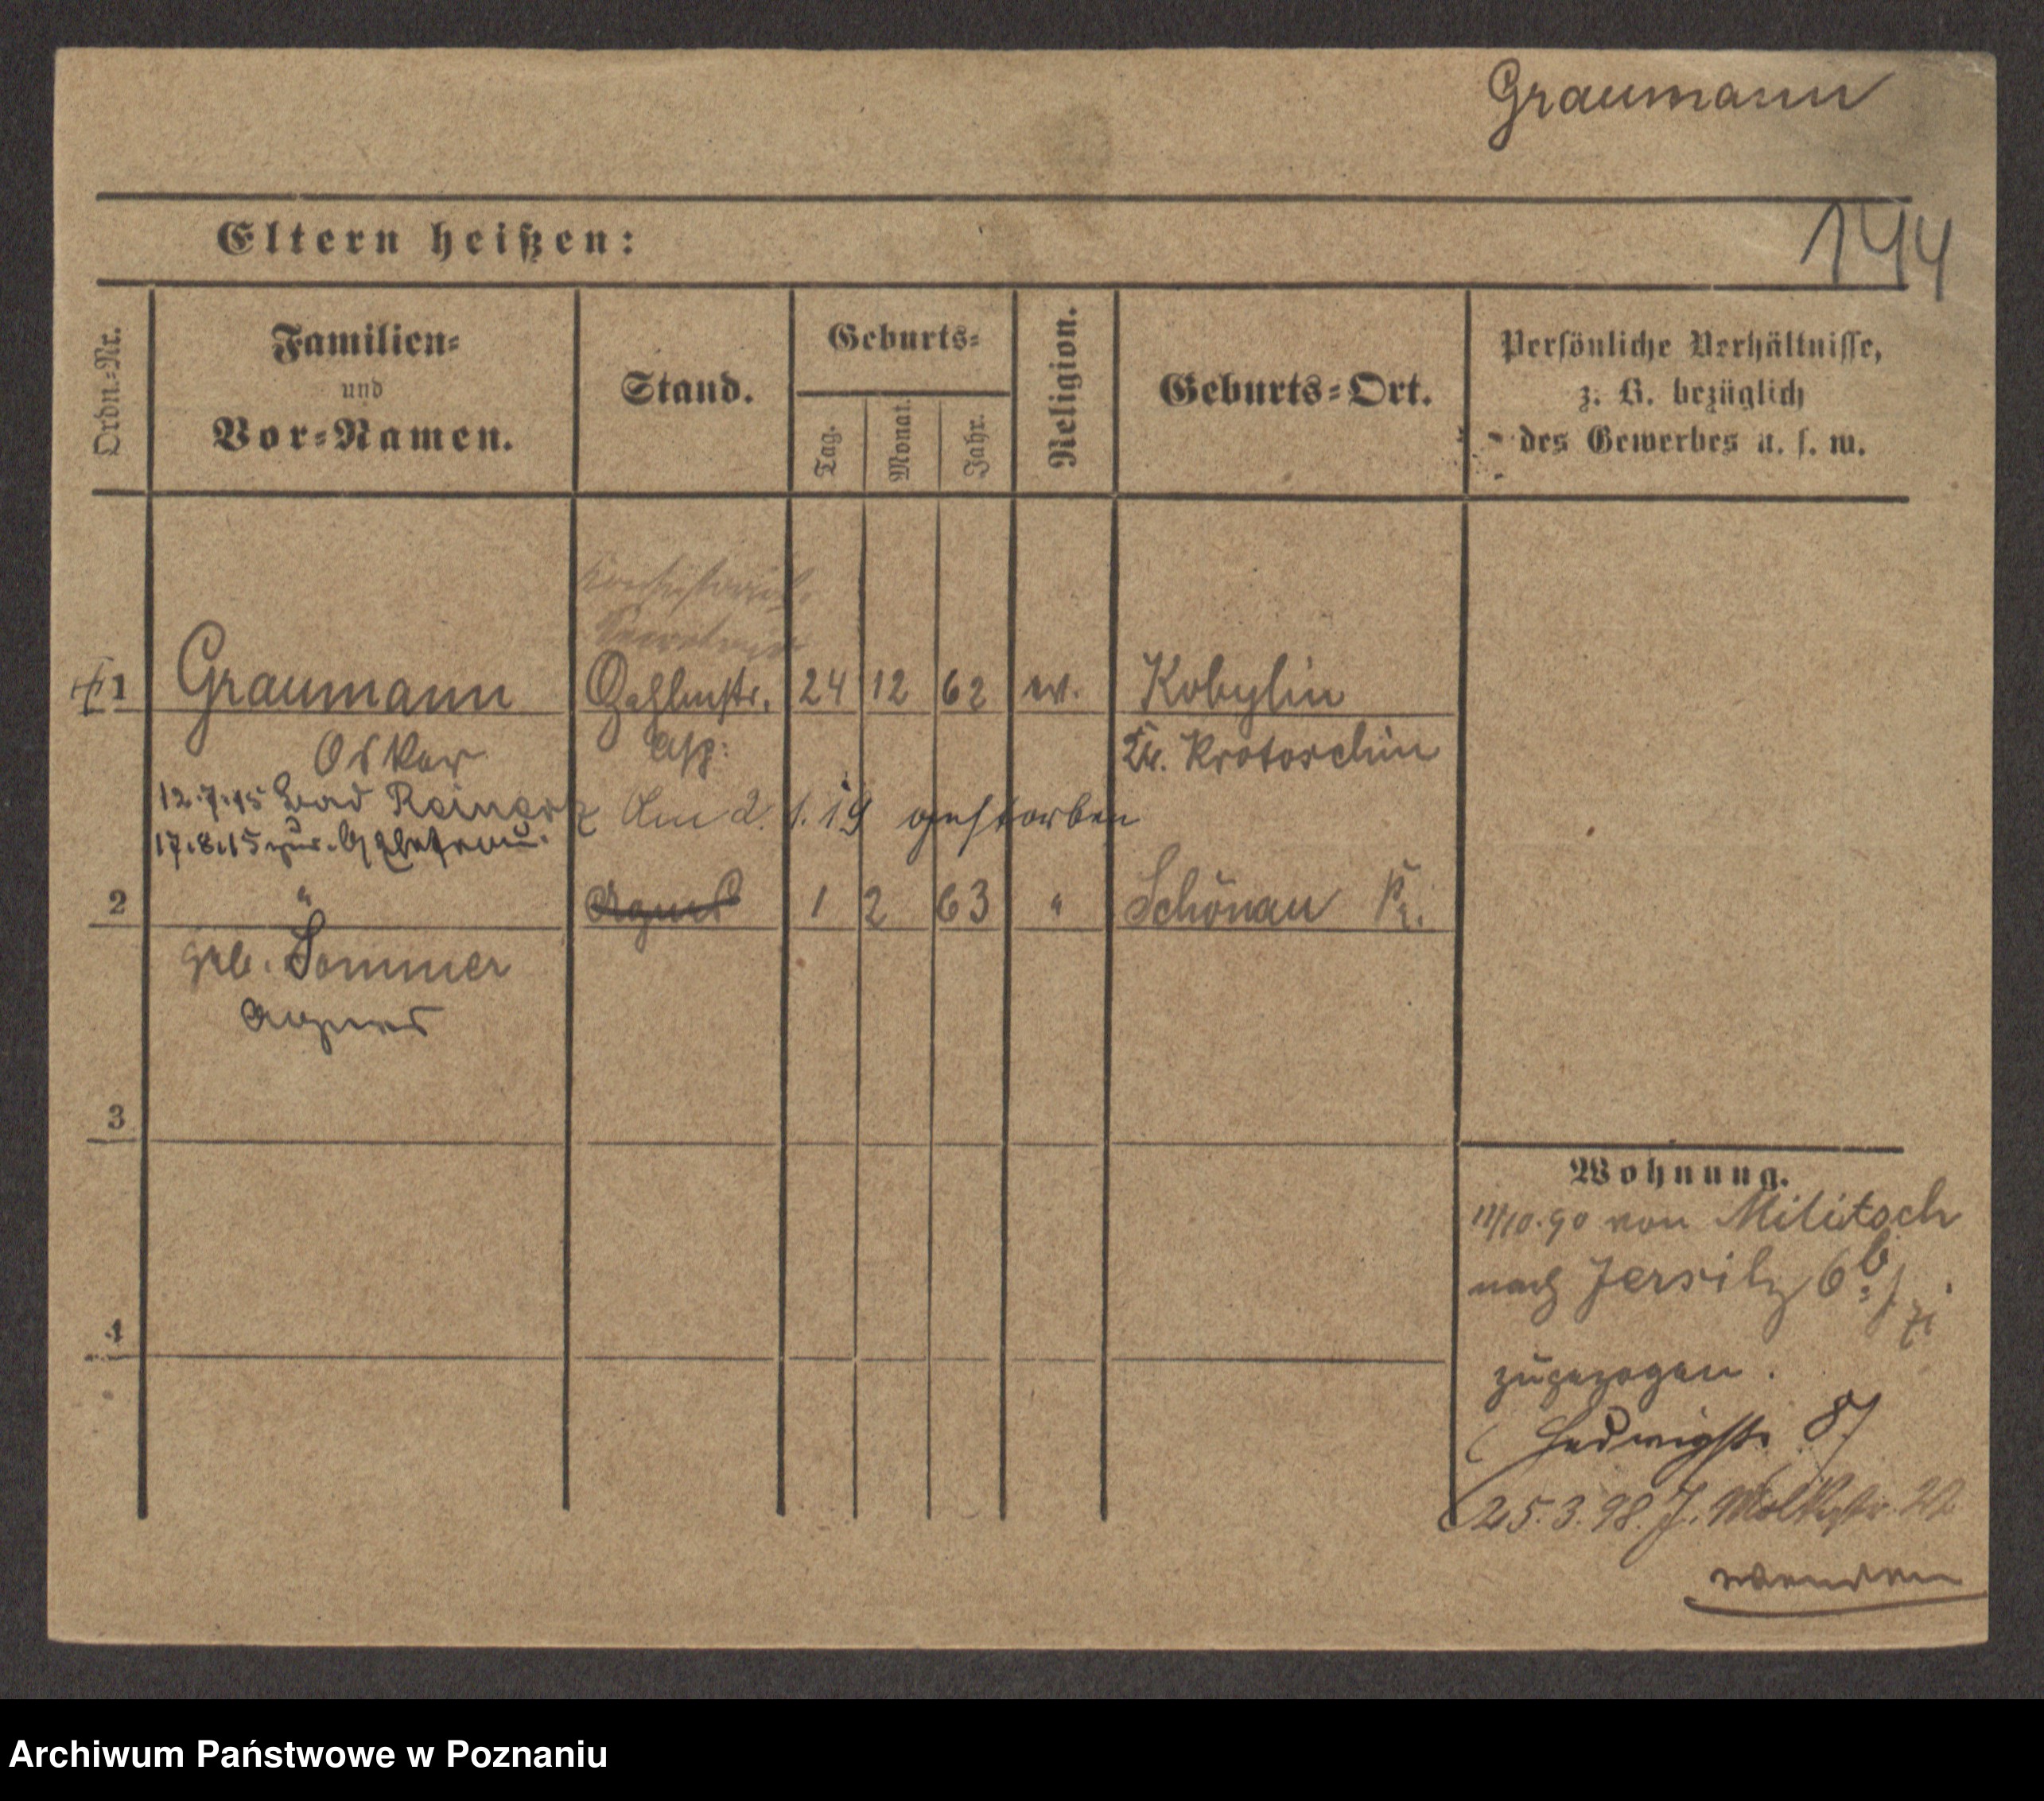 Graumann
144
Eltern heißen:
Ordn.-Nr.
Familien-
und
Vor-Namen.
Stand.
Geburts-
Tag.
Monat.
Jahr.
Religion.
Geburts-Ort.
Persönliche Verhältnisse,
z. B. bezüglich
des Gewerbes u. s. w.
Secretair
1 Graumann Zahlmstr. 24 12 62 ev. Kobylin
Oskar Asp: Kr. Krotoschin
12.7.15 Bad Reinerz Am 2. 1. 19 gestorben
17.8.15 zur.
2 " Agnes 1 2 63 " Schönau
geb. Sommer
Agnes
3
4
Wohnung.
11/10.90 von Militsch
nach Jersitz 6b
zugezogen.
Hedwigstr. 8
25.3.98. J. Moltkestr.
wenden
Archiwum Państwowe w Poznaniu